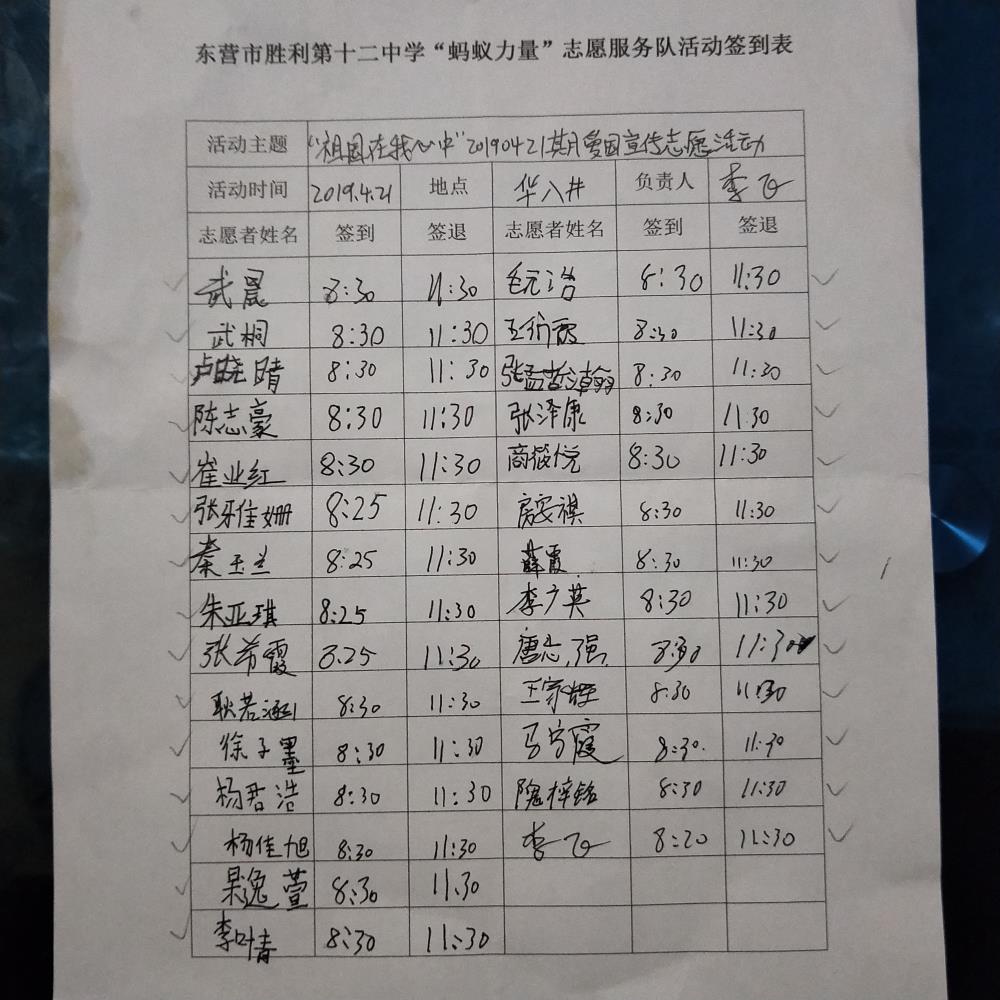 东营市胜利第十二中学“蚂蚁力量”志愿服务队活动签到表
活动主题 “祖国在我心中”20190421期月爱国宣传志愿活动
活动时间 2019.4.21 地点 华八井 负责人 李飞
志愿者姓名 签到 签退 志愿者姓名 签到 签退
武晨 8:30 11:30 毛元治 8:30 11:30
武桐 8:30 11:30 8:30 11:30
卢晓晴 8:30 11:30 张孟哲瀚 8:30 11:30
陈志豪 8:30 11:30 张泽康 8:30 11:30
崔业红 8:30 11:30 8:30 11:30
张牙佳姗 8:25 11:30 房安祺 8:30 11:30
秦玉兰 8:25 11:30 薛霞 8:30 11:30
朱亚琪 8:25 11:30 李广英 8:30 11:30
张希霞 8:25 11:30 唐志强 8:30 11:30
耿若涵 8:30 11:30 8:30 11:30
徐子墨 8:30 11:30 马宁霞 8:30 11:30
杨君浩 8:30 11:30 隗梓铭 8:30 11:30
杨佳旭 8:30 11:30 李飞 8:20 11:30
杲逸萱 8:30 11:30
李叶青 8:30 11:30